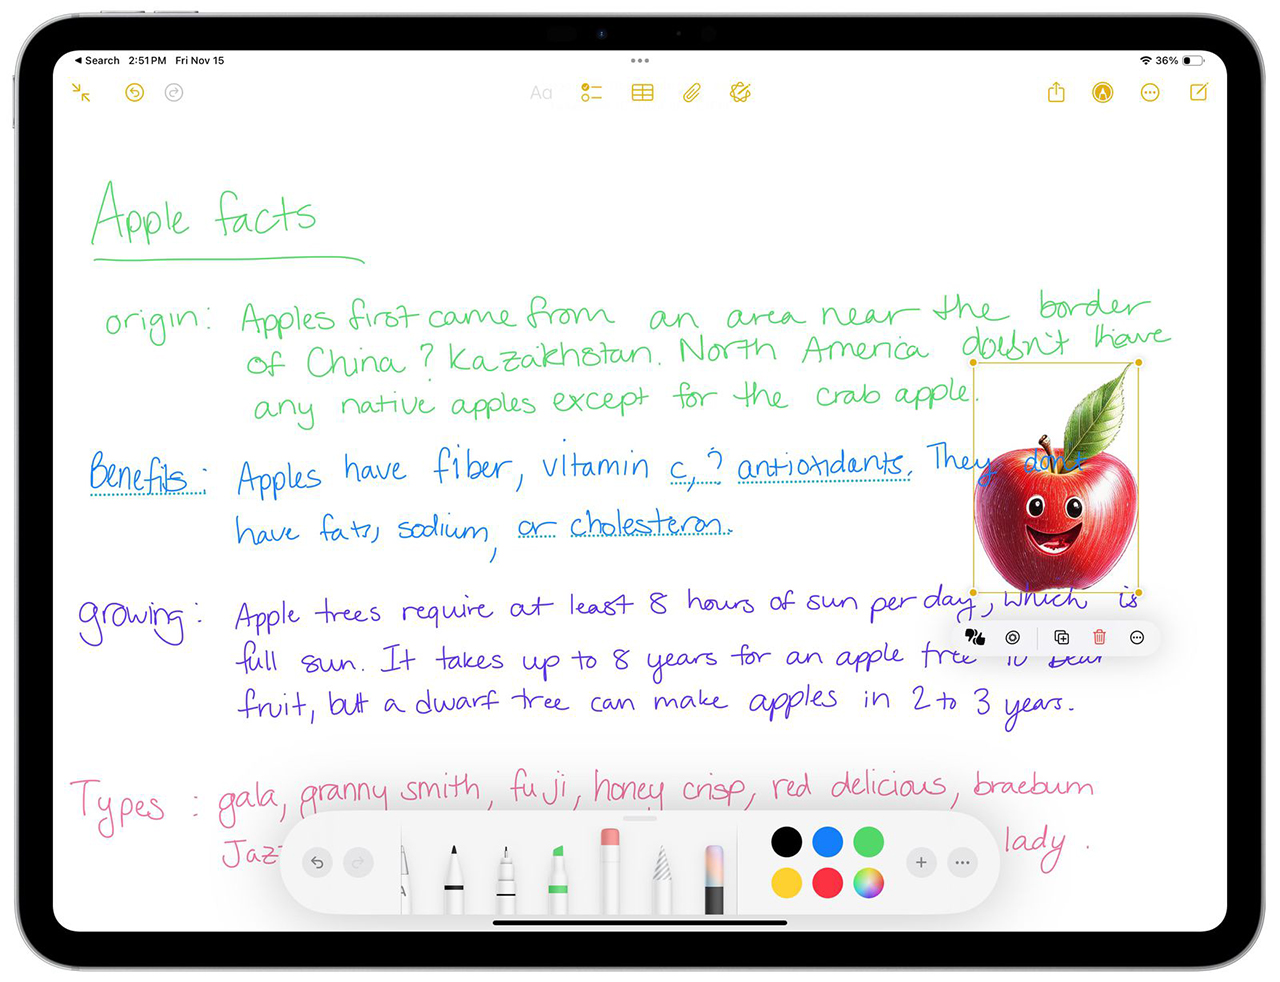 Search 2:51 PM Fri Nov 15
36%
Aa
Apple facts
origin: Apples first came from an area near the border
of China ? Kazakhstan. North America doesn't have
any native apples except for the crab apple.
Benefits: Apples have fiber, vitamin c, ? antioxidants. They don't
have fats, sodium, or cholesteron.
growing: Apple trees require at least 8 hours of sun per day, which is
full sun. It takes up to 8 years for an apple tree to bear
fruit, but a dwarf tree can make apples in 2 to 3 years.
Types: gala, granny smith, fuji, honey crisp, red delicious, braeburn
Jaz lady.
A